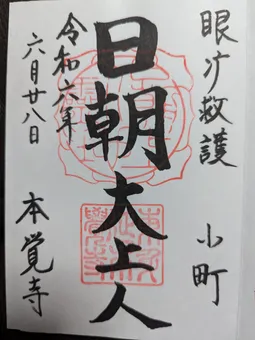 眼疒救護 小町
日朝大上人
令和六年
六月廿八日 本覚寺